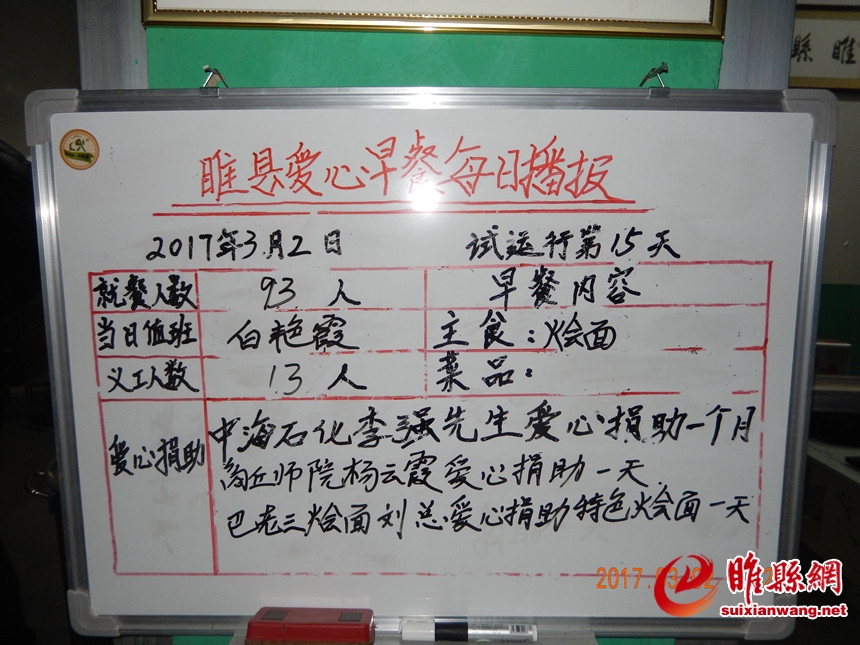 縣睢
睢县爱心早餐每日播报
2017年3月2日 试运行第15天
就餐人数 93人 早餐内容
当日值班 白艳霞 主食：烩面
义工人数 13人 菜品：
爱心捐助 中海石化李强先生爱心捐助一个月
商丘师院杨云霞爱心捐助一天
巴老三烩面刘总爱心捐助特色烩面一天
2017.03.02
睢縣網
suixianwang.net